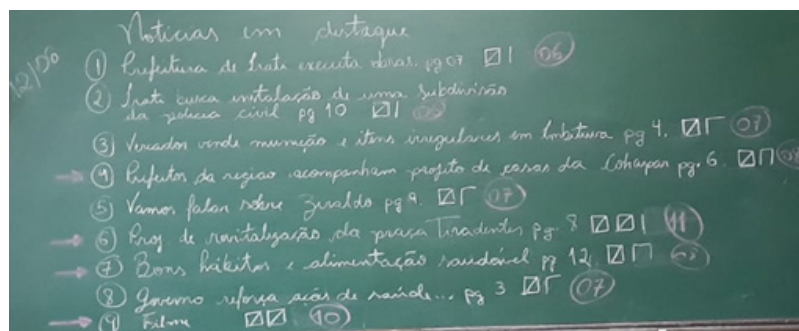 12/06
Notícias em destaque
① Prefeitura de Irati executa obras. pg 07 06
② Irati busca instalação de uma subdivisão
da polícia civil pg 10
③ Vereador vende munição e itens irregulares em Imbituva pg 4. 07
④ Prefeitos da região acompanham projeto de casas da Cohapar pg. 6. 08
⑤ Vamos falar sobre Ziraldo pg 9. 07
⑥ Proj. de revitalização da praça Tiradentes pg. 8 11
⑦ Bons hábitos e alimentação saudável pg 12. 08
⑧ Governo reforça ações de saúde... pg 3 07
⑨ Filme 10